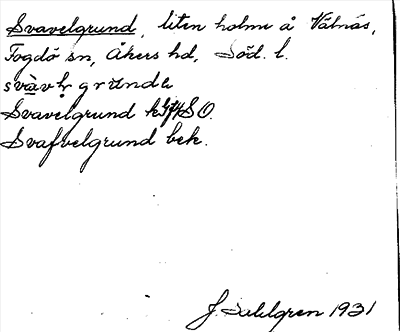 Svavelgrund, liten holme å Välnäs,
Fogdö sn, Åkers hd, Söd. l.
svàvḷ grunda
Svavelgrund SO.
Svafvelgrund bek.
J. Sahlgren 1931